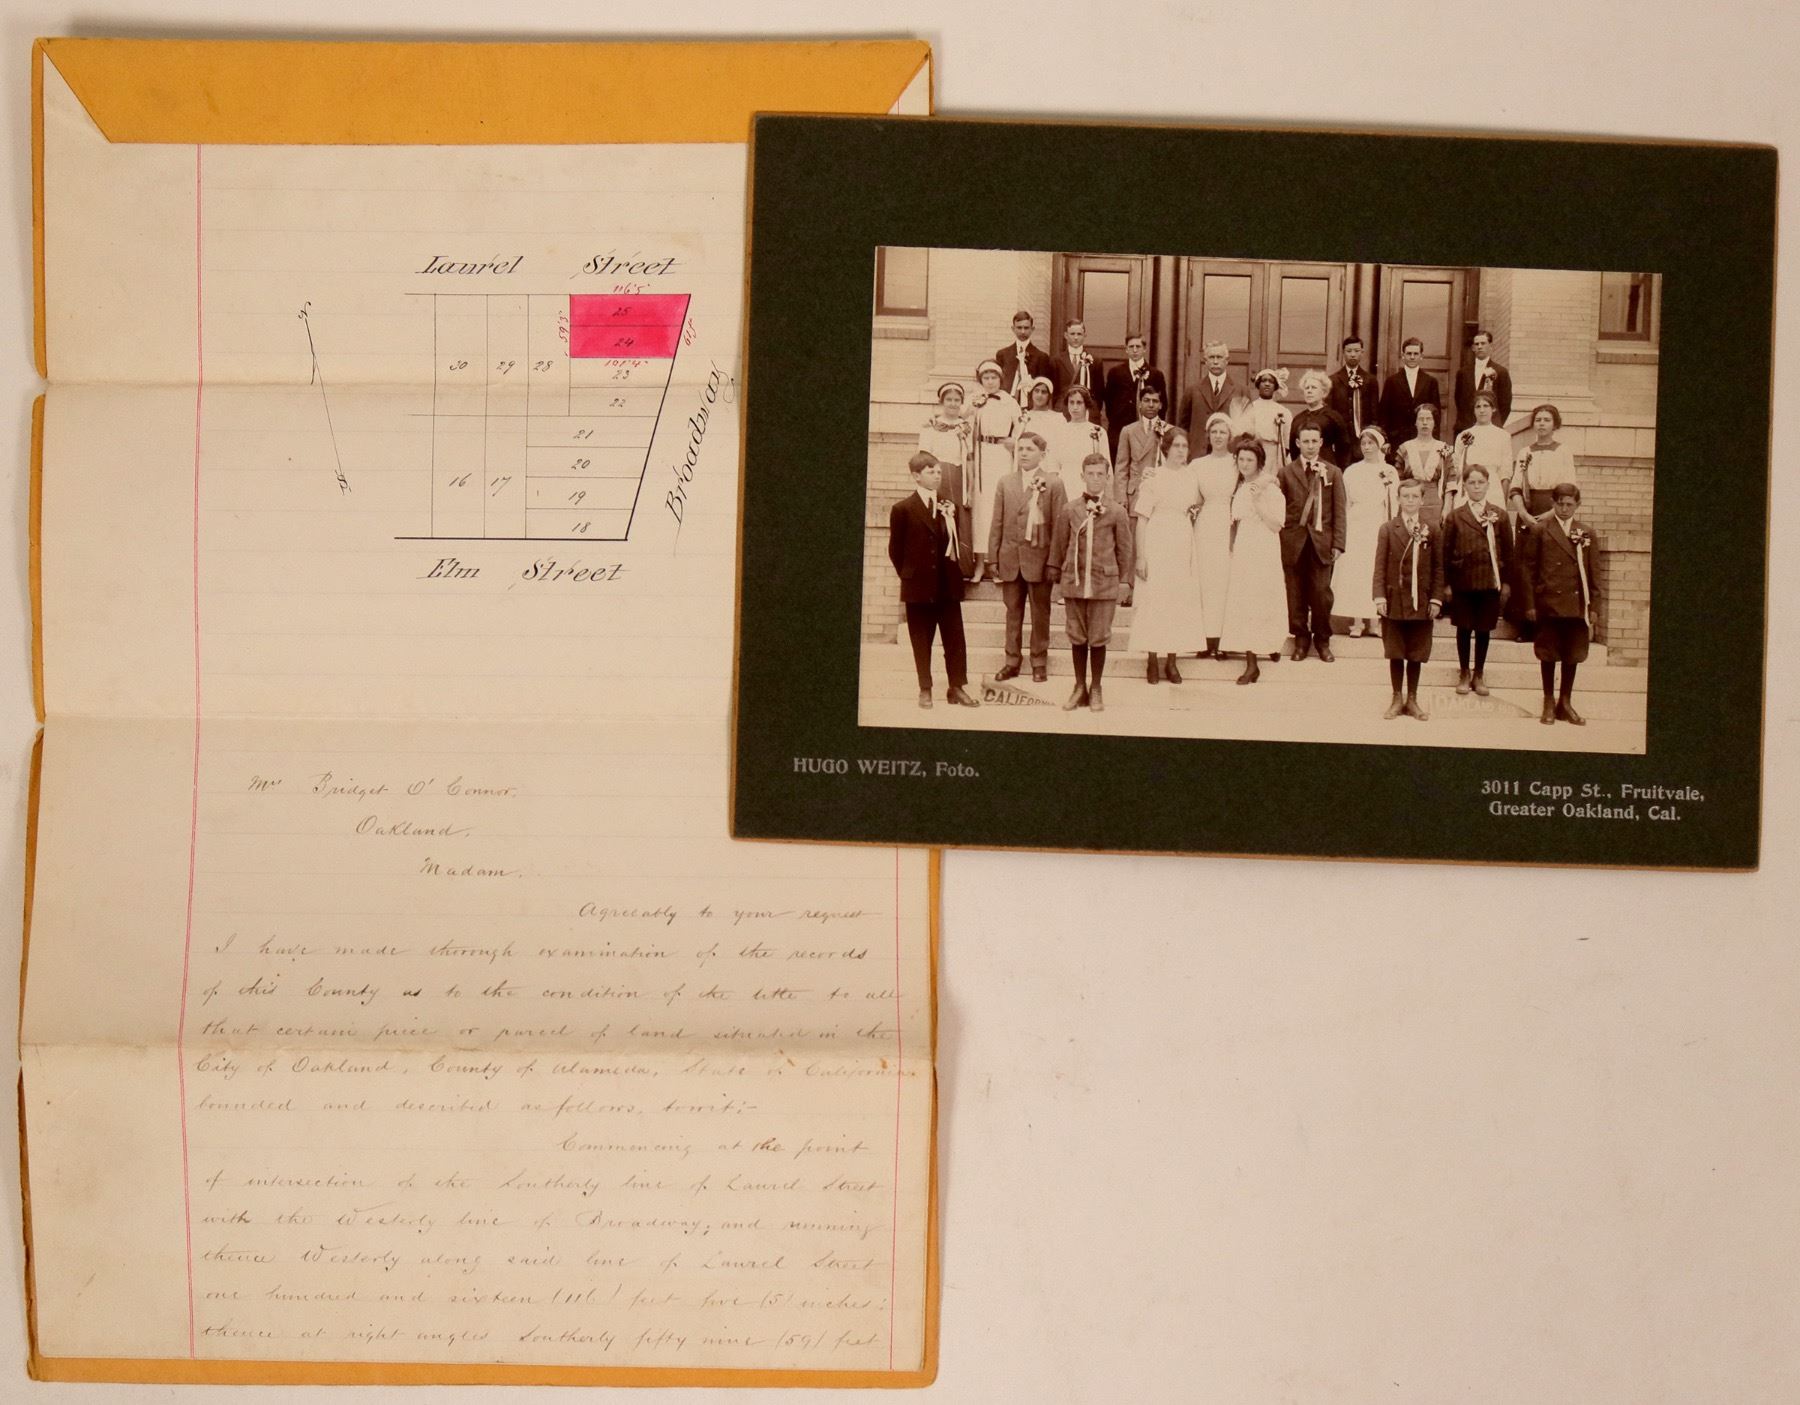 Laurel Street
116'5"
25
59'3"
24
61'5"
101'4"
30 29 28 23
22
21
20
16 17 19
18
Broadway
Elm Street
Mrs Bridget O'Connor,
Oakland,
Madam,
Agreeably to your request
I have made thorough examination of the records
of this County as to the condition of the title to all
that certain piece or parcel of land situated in the
City of Oakland, County of Alameda, State of California
bounded and described as follows, towit:-
Commencing at the point
of intersection of the Southerly line of Laurel Street
with the Westerly line of Broadway; and running
thence Westerly along said line of Laurel Street
one hundred and sixteen (116) feet five (5) inches;
thence at right angles Southerly fifty nine (59) feet
CALIFORNIA
OAKLAND
HUGO WEITZ, Foto.
3011 Capp St., Fruitvale,
Greater Oakland, Cal.